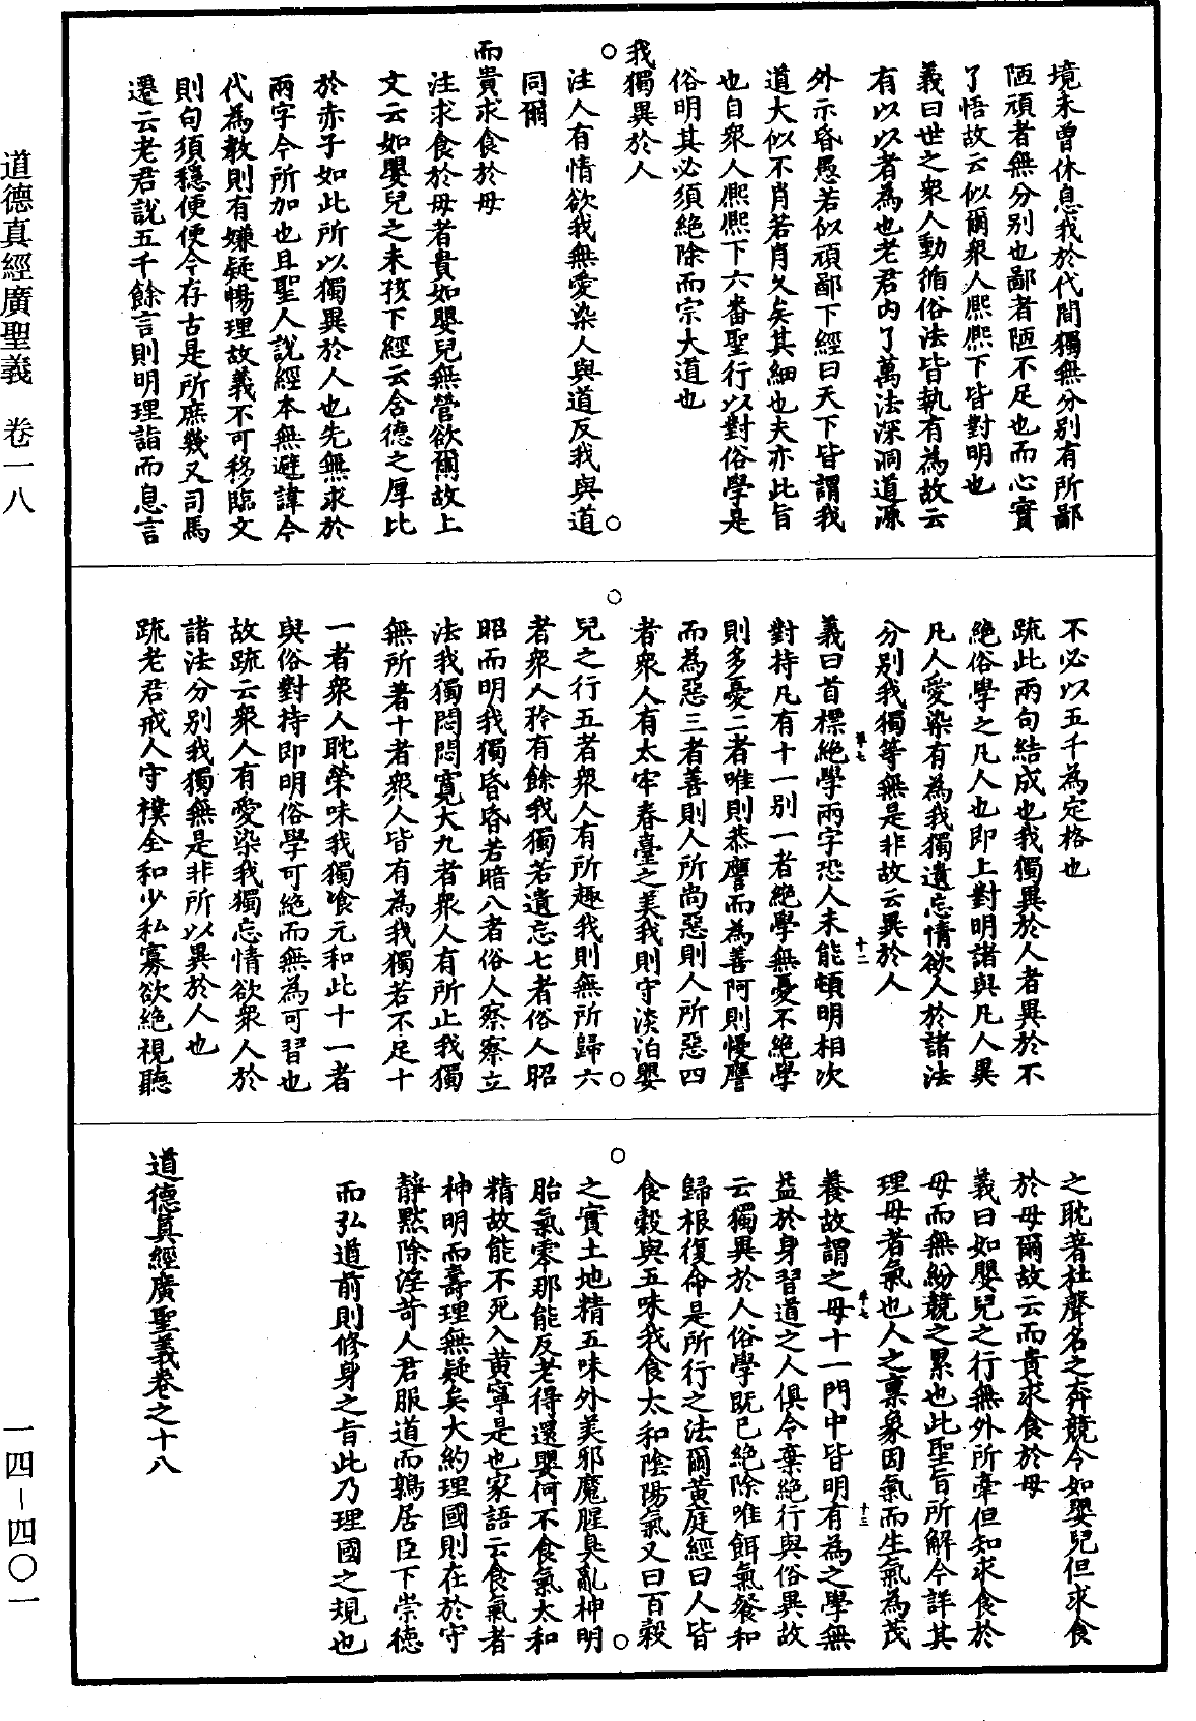 境未曾休息我於代間獨無分別有所鄙
陋頑者無分別也鄙者陋不足也而心實
了悟故云似爾衆人熙熙下皆對明也
義曰世之衆人動循俗法皆執有為故云
有以以者為也老君內了萬法深洞道源
外示昏愚若似頑鄙下經曰天下皆謂我
道大似不肖若肖久矣其細也夫亦此旨
也自衆人熙熙下六番聖行以對俗學是
俗明其必須絕除而宗大道也
我獨異於人
注人有情欲我無愛染人與道反我與道
同爾
而貴求食於母
注求食於母者貴如嬰兒無營欲爾故上
文云如嬰兒之未孩下經云含德之厚比
於赤子如此所以獨異於人也先無求於
兩字今所加也且聖人說經本無避諱今
代為教則有嫌疑暢理故義不可移臨文
則句須穩便便今存古是所庶幾又司馬
遷云老君說五千餘言則明理詣而息言
不必以五千為定格也
疏此兩句結成也我獨異於人者異於不
絕俗學之凡人也即上對明諸與凡人異
凡人愛染有為我獨遺忘情欲人於諸法
分別我獨等無是非故云異於人
義曰首標絕學兩字恐人未能頓明相次
對持凡有十一別一者絕學無憂不絕學
則多憂二者唯則恭譍而為善阿則慢譍
而為惡三者善則人所尚惡則人所惡四
者衆人有太牢春臺之美我則守淡泊嬰
兒之行五者衆人有所趣我則無所歸六
者衆人矜有餘我獨若遺忘七者俗人昭
昭而明我獨昏昏若暗八者俗人察察立
法我獨悶悶寬大九者衆人有所止我獨
無所著十者衆人皆有為我獨若不足十
一者衆人耽榮味我獨飡元和此十一者
與俗對持即明俗學可絕而無為可習也
故疏云衆人有愛染我獨忘情欲衆人於
諸法分別我獨無是非所以異於人也
疏老君戒人守樸全和少私寡欲絕視聽
之耽著杜聲名之奔競令如嬰兒但求食
於母爾故云而貴求食於母
義曰如嬰兒之行無外所牽但知求食於
母而無紛競之累也此聖旨所解今詳其
理母者氣也人之稟象因氣而生氣為茂
養故謂之母十一門中皆明有為之學無
益於身習道之人俱令棄絕行與俗異故
云獨異於人俗學既已絕除唯餌氣餐和
歸根復命是所行之法爾黃庭經曰人皆
食穀與五味我食太和陰陽氣又曰百穀
之實土地精五味外美邪魔腥臭亂神明
胎氣零那能反老得還嬰何不食氣太和
精故能不死入黃寧是也家語云食氣者
神明而壽理無疑矣大約理國則在於守
靜默除淫苛人君服道而鶉居臣下崇德
而弘道前則修身之旨此乃理國之規也
道德真經廣聖義卷之十八
道德真經廣聖義 卷一八
一四-四〇一